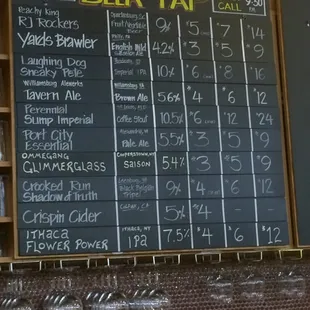 BEER TAP
CALL 9:30
RJ Rockers Spartanburg, SC Fruit Vegetable 9% $5 $7 $14
Yards Brawler English Mild 4.2% $3 $5 $9
Laughing Dog
Sneaky Pete Imperial IPA 10% $6 $8 $16
Williamsburg Alewerks
Tavern Ale Brown Ale 5.6% $4 $6 $12
Perennial
Sump Imperial Coffee Stout 10.5% $6 $12 $24
Port City
Essential Pale Ale 5.5% $3 $5 $9
OMMEGANG COOPERSTOWN, NY
GLIMMERGLASS SAISON 5.4% $3 $5 $9
Crooked Run
Shadow of Truth Black Belgian Tripel 9% $4 $6 $12
Crispin Cider Colfax, CA 5% $4 - -
ITHACA ITHACA, NY
FLOWER POWER IPA 7.5% $4 $6 $12